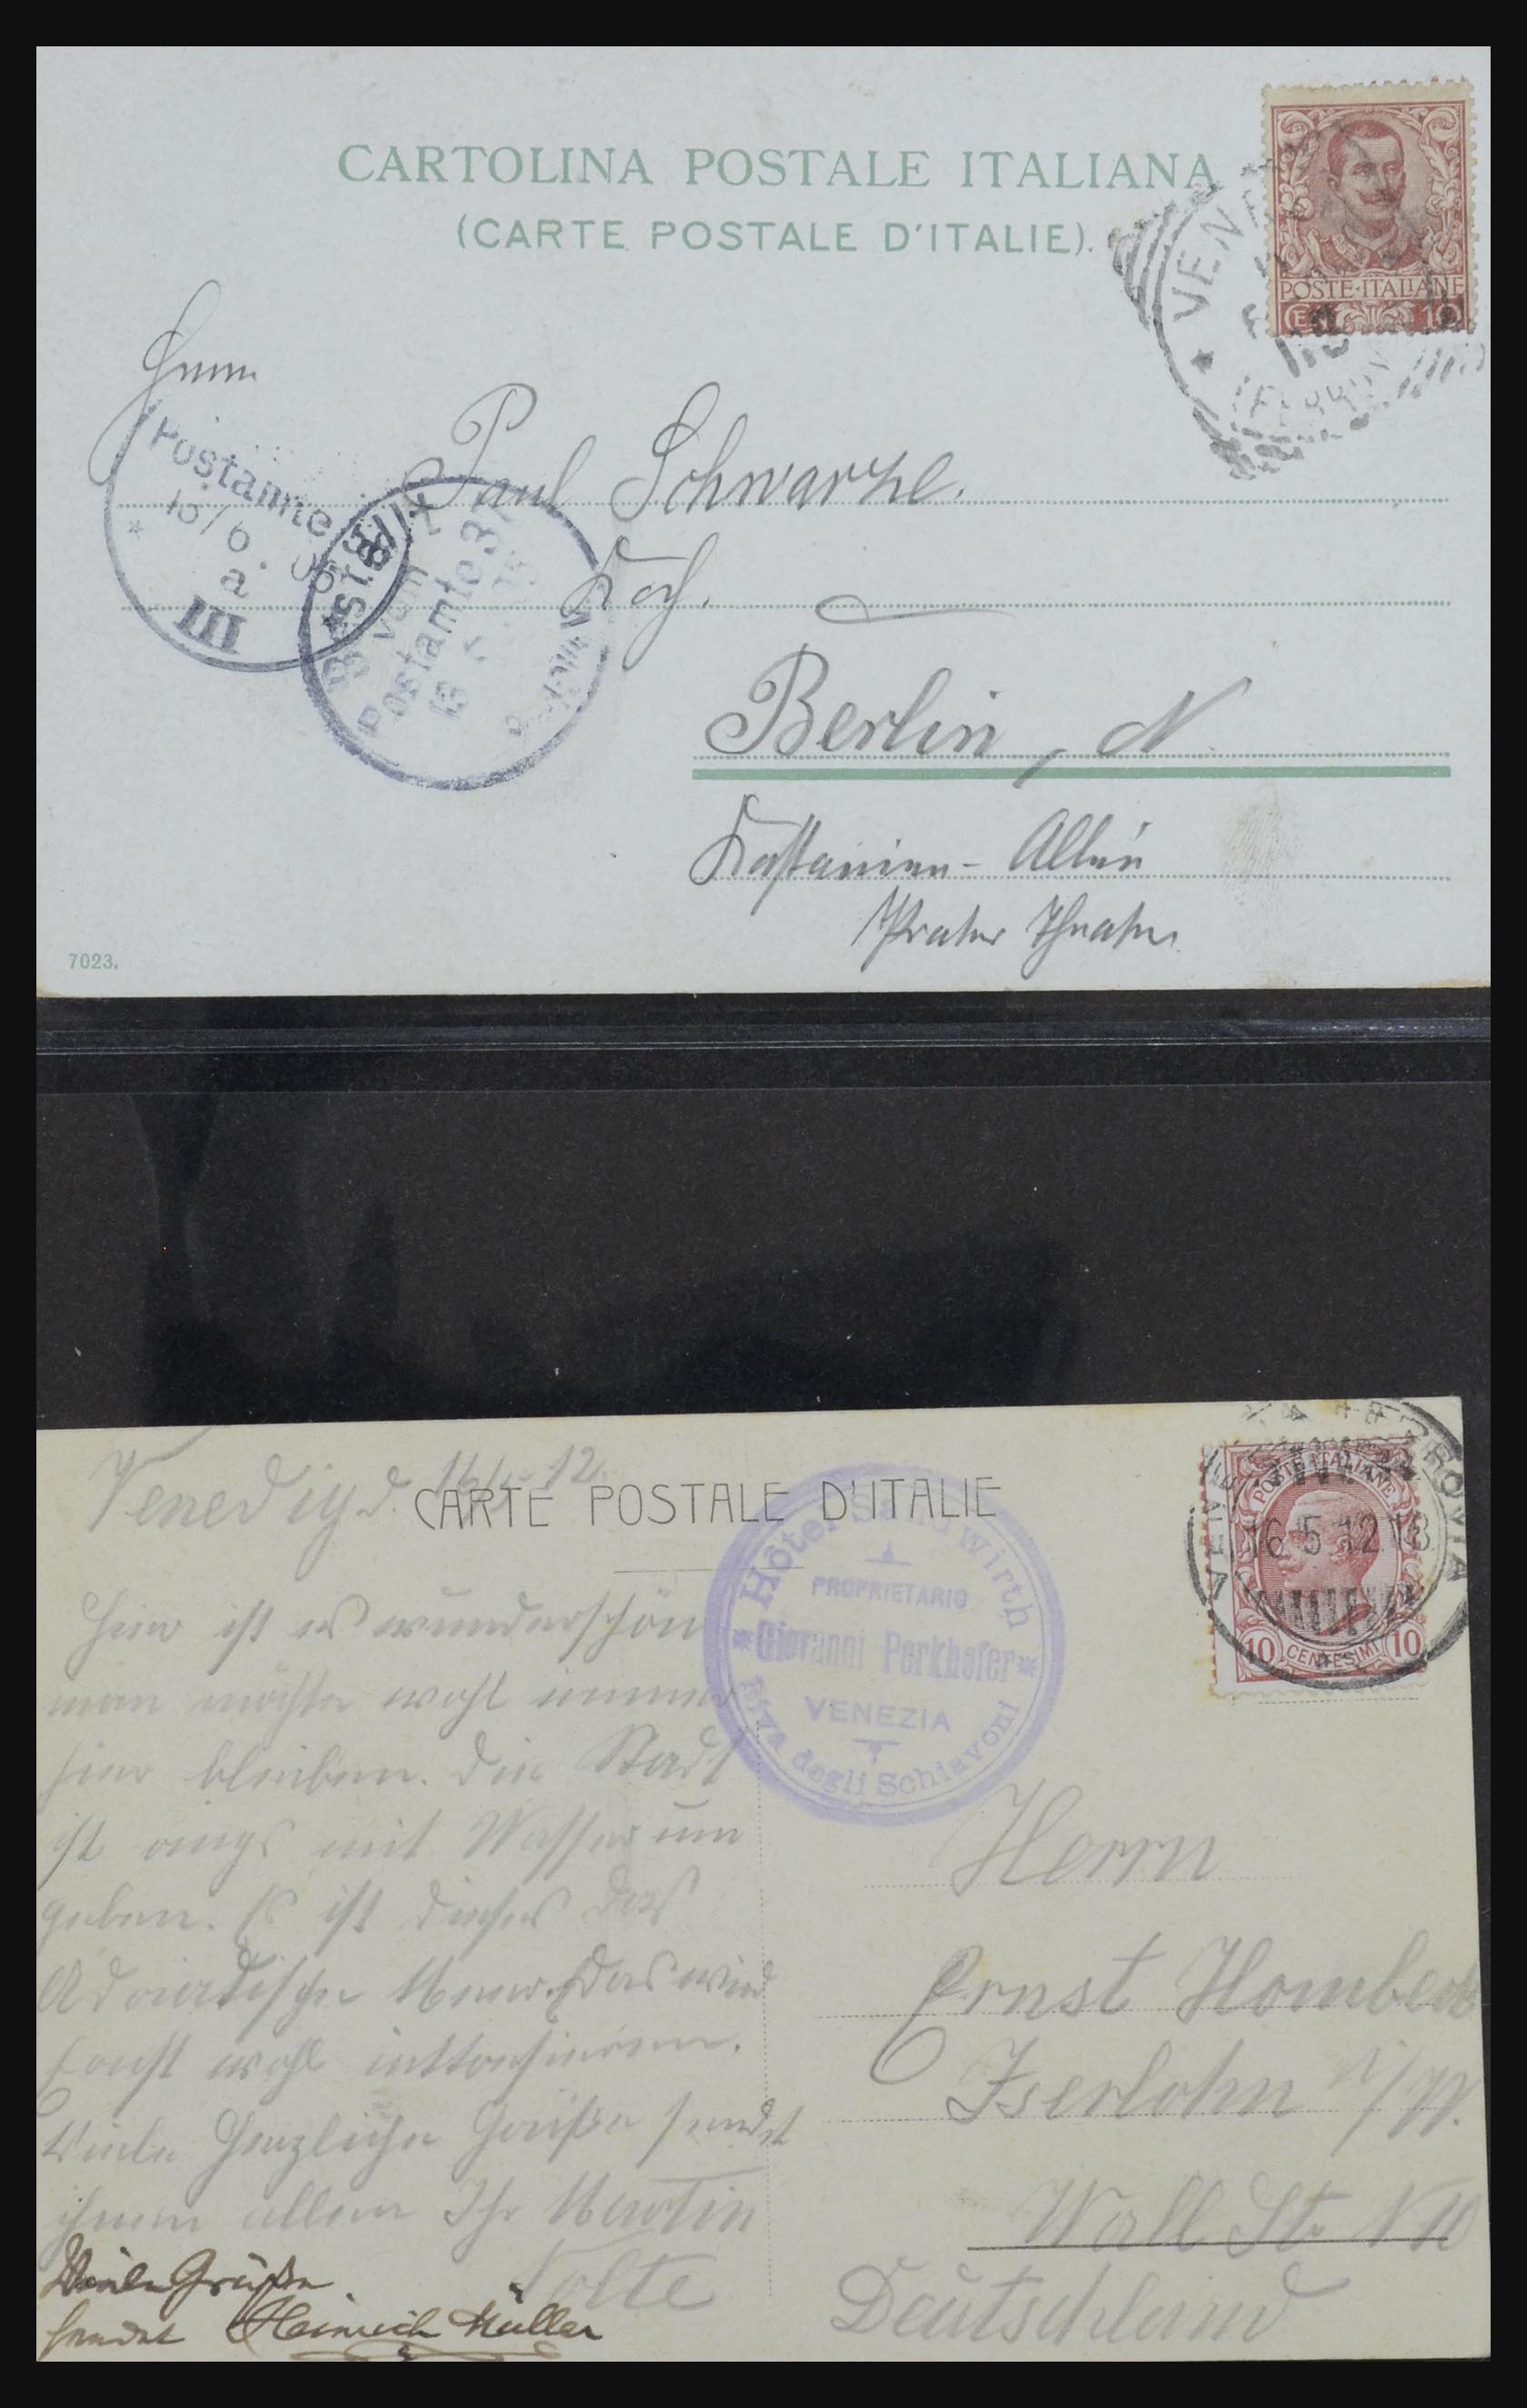 CARTOLINA POSTALE ITALIANA
(CARTE POSTALE D'ITALIE).
VEN
POSTE·ITALIANE
10
Herrn
Paul Schwarze.
Koch.
Berlin, N.
Kastanien-Allée
Prater Theater
Postamte
15/6.
a
III
Best.
vom
Postamte 37
7023.
Venedig d. 16/5 12.
CARTE POSTALE D'ITALIE
Hier ist es wunderschön
man möchte wohl immer
hier bleiben. Die Stadt
ist rings mit Wasser um
geben. Es ist dieses das
Adriatische Meer. Das wird
Ernst wohl
Viele herzliche Grüße sendet
ihnen allen Ihr Martin
Nolte
Viele Grüße
sendet Heinrich Müller
Hôtel Sandwirth
PROPRIETARIO
Giovanni Perkhofer
VENEZIA
Riva degli Schiavoni
POSTE ITALIANE
16.5.12.18
10 CENTESIMI 10
FERROVIA
Herrn
Ernst Hombeck
Iserlohn i/W.
Wall St. N 10
Deutschland